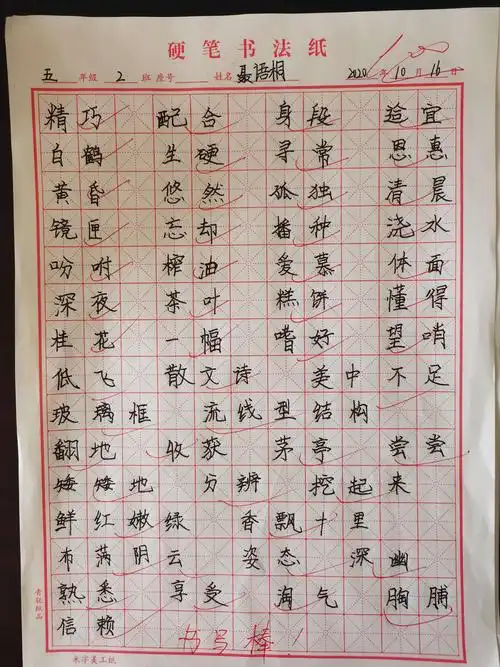 硬笔书法纸
五 年级 2 班 座号 姓名 聂语桐 2020 年 10 月 16 日
精巧 配合 身段 适宜
白鹤 生硬 寻常 思惠
黄昏 悠然 孤独 清晨
镜匣 忘却 播种 浇水
吩咐 榨油 爱慕 体面
深夜 茶叶 糕饼 懂得
桂花 一幅 嗜好 望哨
低飞 散文诗 美中不足
玻璃框 流线型结构
翻地 收获 茅亭 尝尝
矮矮地 分辨 挖起来
鲜红嫩绿 香飘十里
布满阴云 姿态 深幽
熟悉 享受 淘气 胸脯
信赖 书写棒！
青联纸品
米字美工纸